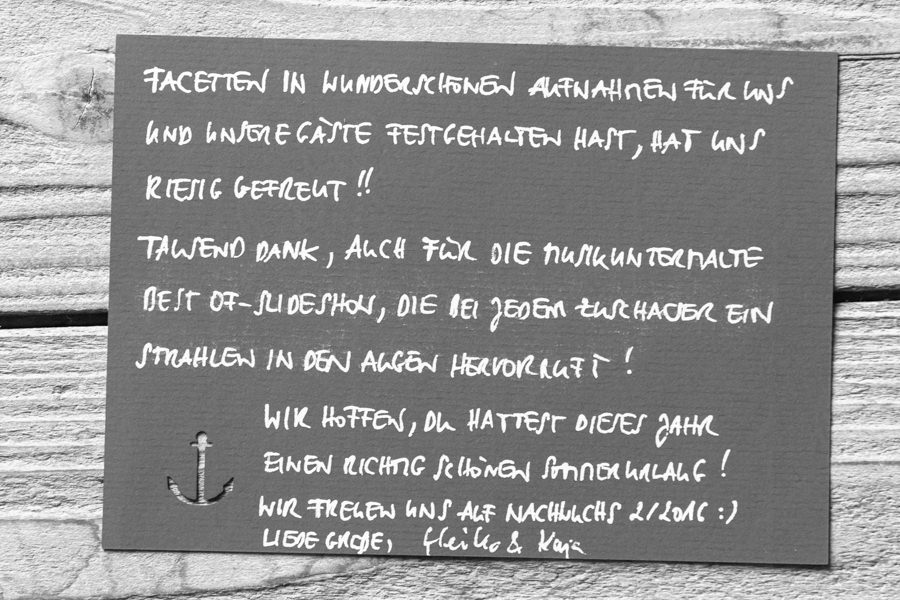 FACETTEN IN WUNDERSCHÖNEN AUFNAHMEN FÜR UNS
UND UNSERE GÄSTE FESTGEHALTEN HAST, HAT UNS
RIESIG GEFREUT!!
TAUSEND DANK, AUCH FÜR DIE MUSIKUNTERMALTE
BEST OF-SLIDESHOW, DIE BEI JEDEM ZUSCHAUER EIN
STRAHLEN IN DEN AUGEN HERVORRUFT!
WIR HOFFEN, DU HATTEST DIESES JAHR
EINEN RICHTIG SCHÖNEN SOMMERURLAUB!
WIR FREUEN UNS AUF NACHWUCHS 2/2016 :)
LIEBE GRÜßE, Heiko & Kaja